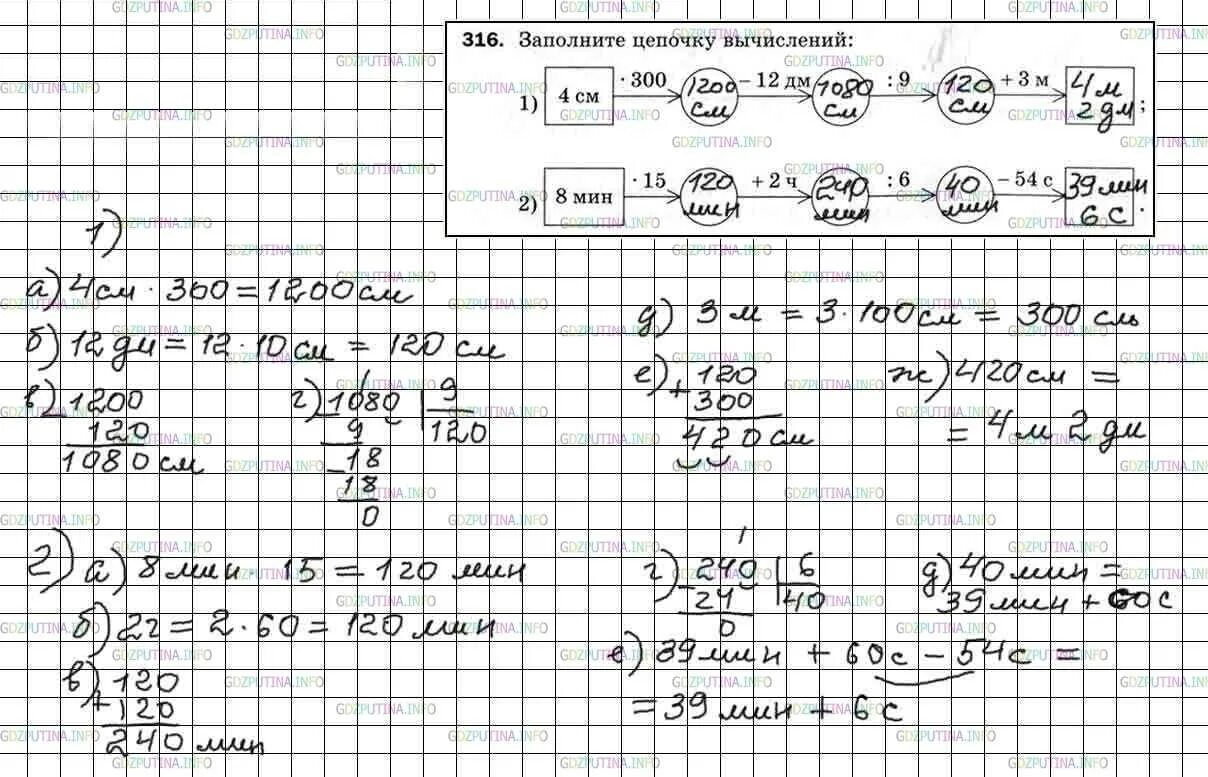 316. Заполните цепочку вычислений:
1) 4 см · 300 1200 см – 12 дм 1080 см : 9 120 см + 3 м 4 м 2 дм ;
2) 8 мин · 15 120 мин + 2 ч 240 мин : 6 40 мин – 54 с 39 мин 6 с .
1)
а) 4 см · 300 = 1200 см
б) 12 дм = 12 · 10 см = 120 см
в) 1200
– 120
1080 см
г) 1080 | 9
9 120
– 18
18
0
д) 3 м = 3 · 100 см = 300 см
е) 120
+ 300
420 см
ж) 420 см =
= 4 м 2 дм
2) а) 8 мин · 15 = 120 мин
б) 2г = 2 · 60 = 120 мин
в) 120
+ 120
240 мин
г) 240 | 6
– 24 40
0
д) 40 мин =
39 мин + 60 с
е) 39 мин + 60 с – 54 с =
= 39 мин + 6 с
GDZPUTINA.INFO